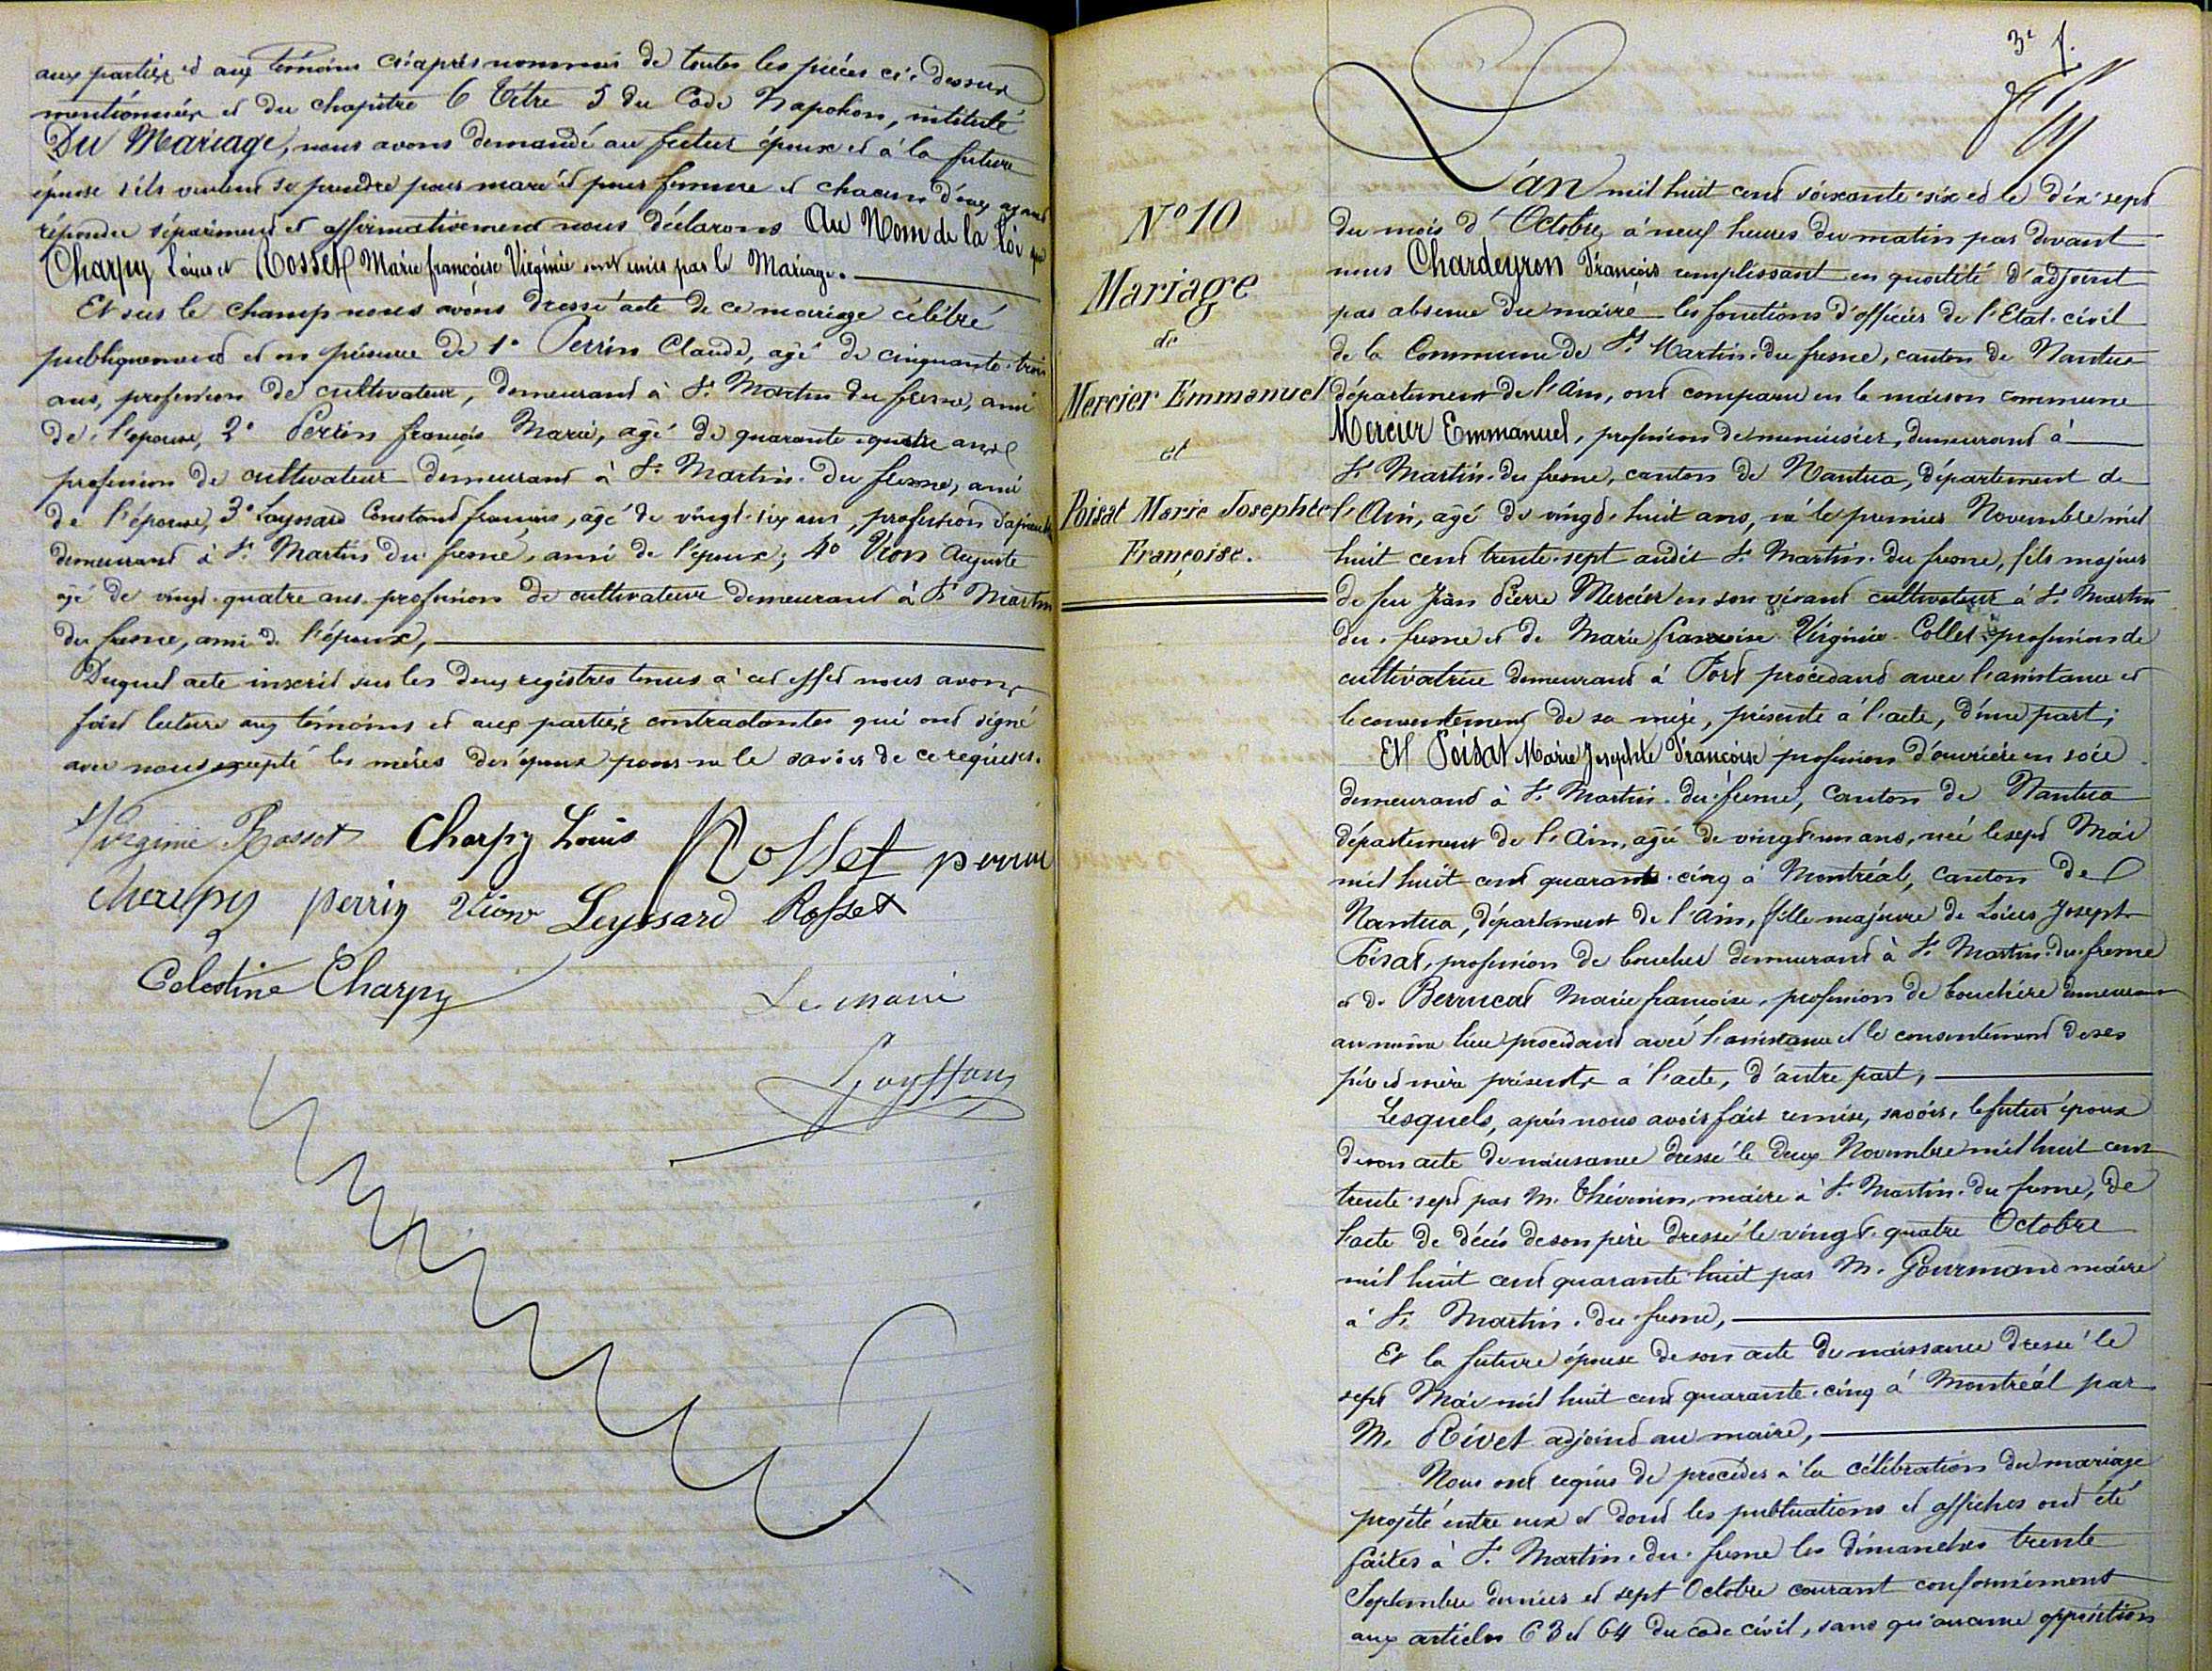 aux parties et aux témoins ci-après nommés de toutes les pièces ci-dessus
mentionnées et du chapitre 6 titre 5 du Code Napoléon, intitulé
Du Mariage, nous avons demandé au futur époux et à la future
épouse s'ils veulent se prendre pour mari et pour femme et chacun d'eux ayant
répondu séparément et affirmativement nous déclarons Au Nom de la loi que
Charpy Louis et Rosset Marie françoise Virginie sont unis par le Mariage.
Et sur le champ nous avons dressé acte de ce mariage célébré
publiquement et en présence de 1° Perrin Claude, agé de cinquante-trois
ans, profession de cultivateur, demeurant à St Martin du fresne, ami
de l'epouse, 2° Perrin françois Marie, agé de quarante-quatre ans
profession de cultivateur demeurant à St Martin du fresne, ami
de l'épouse, 3° Layssard Constant françois, agé de vingt-six ans, profession
demeurant à St Martin du fresne, ami de l'époux; 4° Vion Auguste
agé de vingt-quatre ans profession de cultivateur demeurant à St Martin
du fresne, ami de l'époux,
Duquel acte inscrit sur les deux registres tenus à cet effet nous avons
fait lecture aux témoins et aux parties contractantes qui ont signé
avec nous excepté les mères des époux pour ne le savoir de ce requises.
Virginie Rosset Charpy Louis Rosset perrin
Charpy perrin Vion Leyssard Rosset
Celestine Charpy
Le maire
3e f.
N° 10
Mariage
de
Mercier Emmanuel
et
Poisat Marie Josephte
Françoise.
L'an mil huit cent soixante-six et le dix-sept
du mois d'Octobre à neuf heures du matin par devant
nous Chardeyron François remplissant en qualité d'adjoint
par absence du maire les fonctions d'officier de l'Etat-civil
de la Commune de St Martin-du fresne, canton de Nantua
département de l'Ain, ont comparu en la maison commune
Mercier Emmanuel, profession de menuisier, demeurant à
St Martin-du fresne, canton de Nantua, département de
l'Ain, agé de vingt-huit ans, né le premier Novembre mil
huit cent trente-sept audit St Martin-du fresne, fils majeur
de feu Jean Pierre Mercier en son vivant cultivateur à St Martin
du fresne et de Marie françoise Virginie Collet profession de
cultivatrice demeurant à Port procédant avec l'assistance et
le consentement de sa mère, présente à l'acte, d'une part;
Et Poisat Marie Josephte Françoise profession d'ouvrière en soie
demeurant à St Martin-du-fresne, canton de Nantua
département de l'Ain, agée de vingt-un ans, née le sept Mai
mil huit cent quarante-cinq à Montréal, canton de
Nantua, département de l'Ain, fille majeure de Louis Joseph
Poisat, profession de boucher demeurant à St Martin-du-fresne
et de Berrucat Marie françoise, profession de bouchère demeurant
au même lieu procédant avec l'assistance et le consentement de ses
père et mère présents à l'acte, d'autre part,
Lesquels, après nous avoir fait remise, savoir, le futur époux
de son acte de naissance dressé le deux Novembre mil huit cent
trente-sept par M. Thévenin, maire à St Martin-du fresne, de
l'acte de décès de son père dressé le vingt-quatre Octobre
mil huit cent quarante-huit par M. Gourmand maire
à St Martin-du fresne,
Et la future épouse de son acte de naissance dressé le
sept Mai mil huit cent quarante-cinq à Montréal par
M. Rivet adjoint au maire,
Nous ont requis de procéder à la célébration du mariage
projété entre eux et dont les publications et affiches ont été
faites à St Martin-du-fresne les dimanches trente
Septembre dernier et sept Octobre courant conformément
aux articles 63 et 64 du code civil, sans qu'aucune opposition